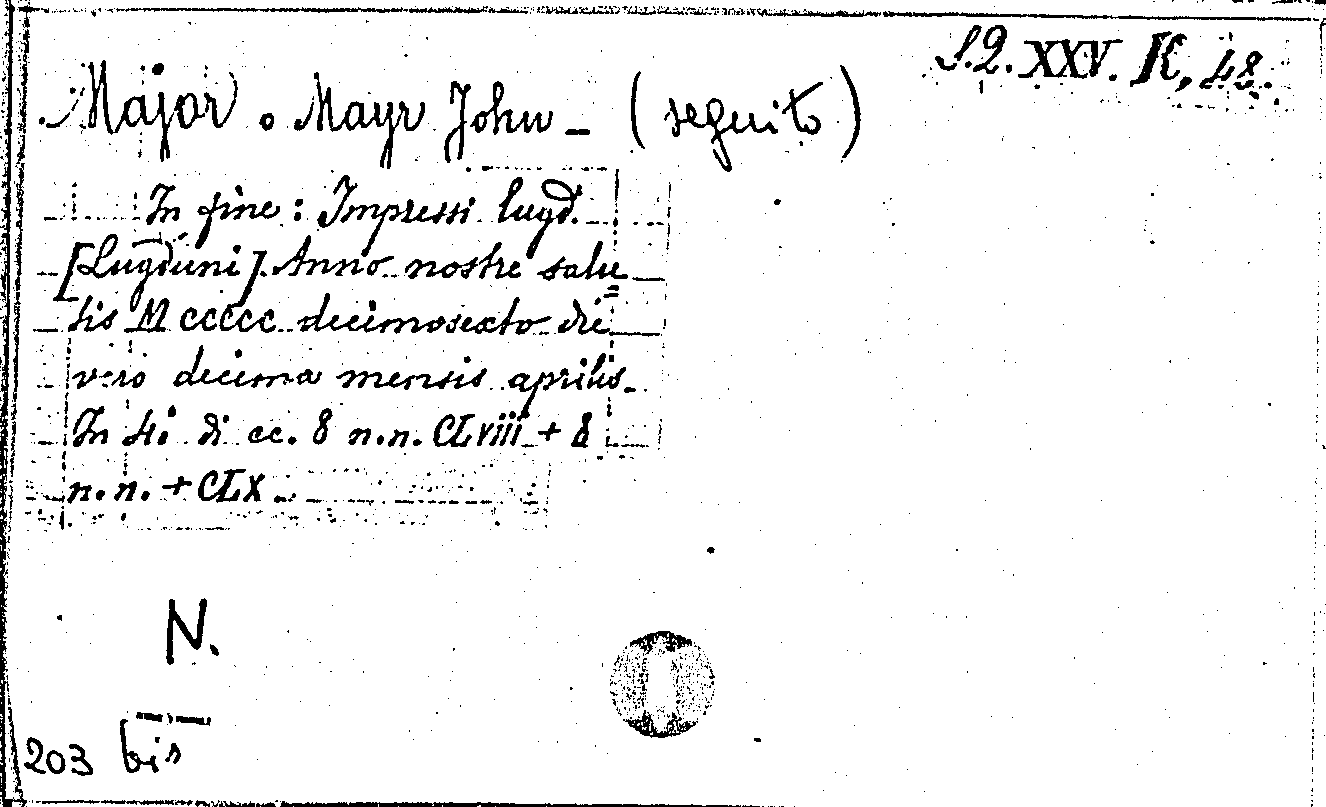 S.Q. XXV. K, 48.
Major o Mayr John - (seguito)
In fine: Impressi lugd.
[Lugduni]. Anno nostre salu
tis M ccccc decimosexto die
vero decima mensis aprilis.
In 4.° di cc. 8 n.n. CLviii + 8
n.n. + CLX.
N.
203 bis